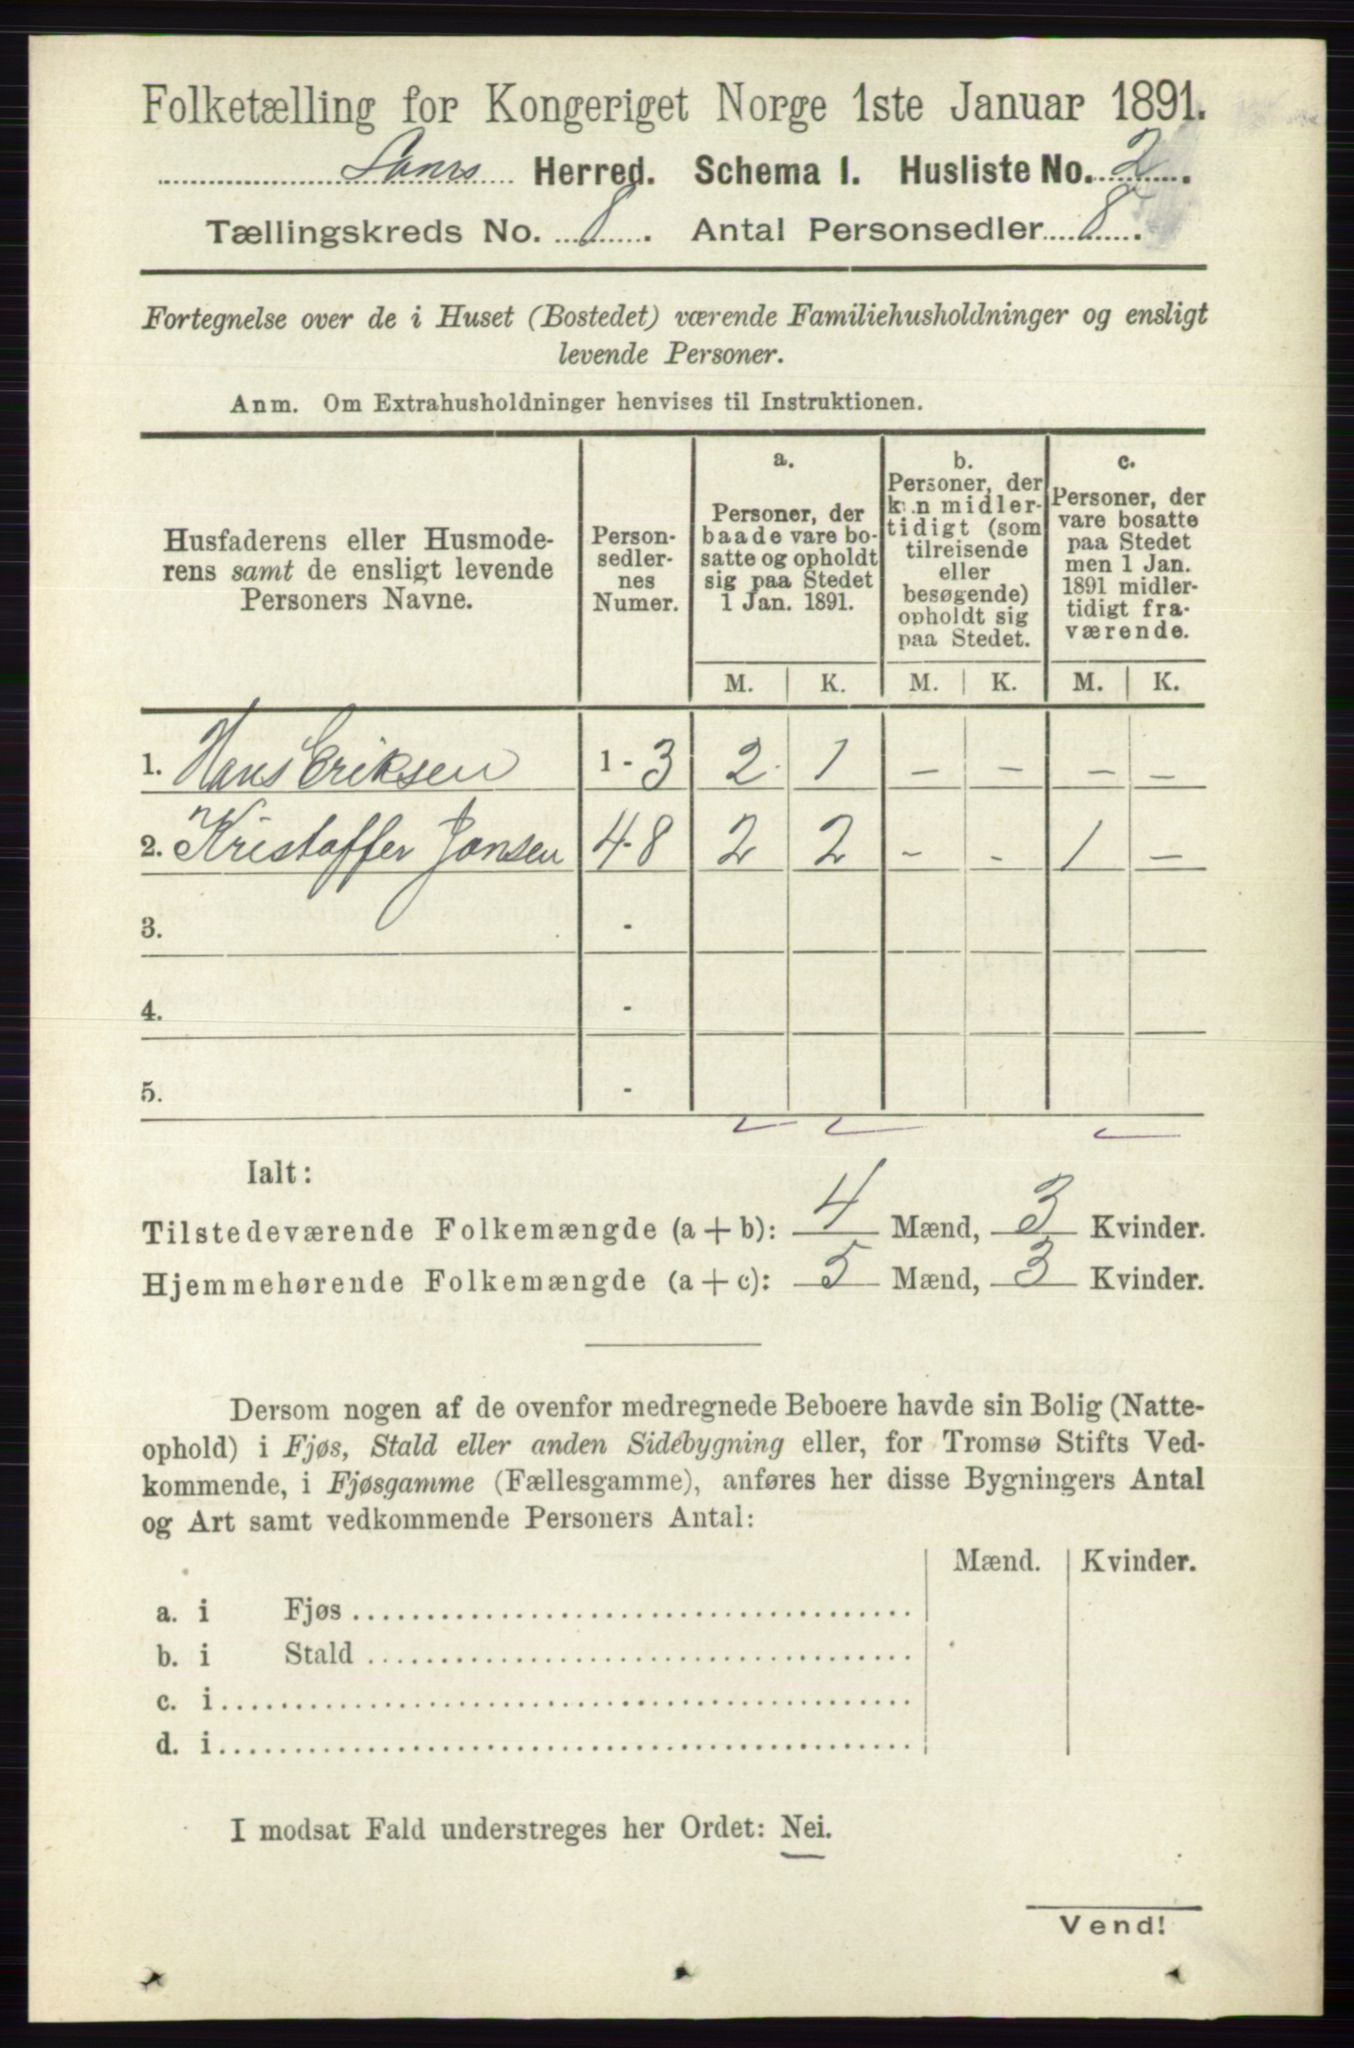 Folketælling for Kongeriget Norge 1ste Januar 1891.
Herred. Schema I. Husliste No. 2.
Tællingskreds No. 8. Antal Personsedler 8.
Fortegnelse over de i Huset (Bostedet) værende Familiehusholdninger og ensligt
levende Personer.
Anm. Om Extrahusholdninger henvises til Instruktionen.
Husfaderens eller Husmode-
rens samt de ensligt levende
Personers Navne.
Person-
sedler-
nes
Numer.
a.
Personer, der
baade vare bo-
satte og opholdt
sig paa Stedet
1 Jan. 1891.
b.
Personer, der
kun midler-
tidigt (som
tilreisende
eller
besøgende)
opholdt sig
paa Stedet.
c.
Personer, der
vare bosatte
paa Stedet
men 1 Jan.
1891 midler-
tidigt fra-
værende.
M. K. M. K. M. K.
1. Hans Eriksen 1 - 3 2 1 - - - -
2. Kristoffer Jonsen 4-8 2 2 - - 1 -
3. -
4. -
5. -
Ialt:
Tilstedeværende Folkemængde (a + b): 4 Mænd, 3 Kvinder.
Hjemmehørende Folkemængde (a + c): 5 Mænd, 3 Kvinder.
Dersom nogen af de ovenfor medregnede Beboere havde sin Bolig (Natte-
ophold) i Fjøs, Stald eller anden Sidebygning eller, for Tromsø Stifts Ved-
kommende, i Fjøsgamme (Fællesgamme), anføres her disse Bygningers Antal
og Art samt vedkommende Personers Antal:
Mænd. Kvinder.
a. i Fjøs
b. i Stald
c. i
d. i
I modsat Fald understreges her Ordet: Nei.
Vend!